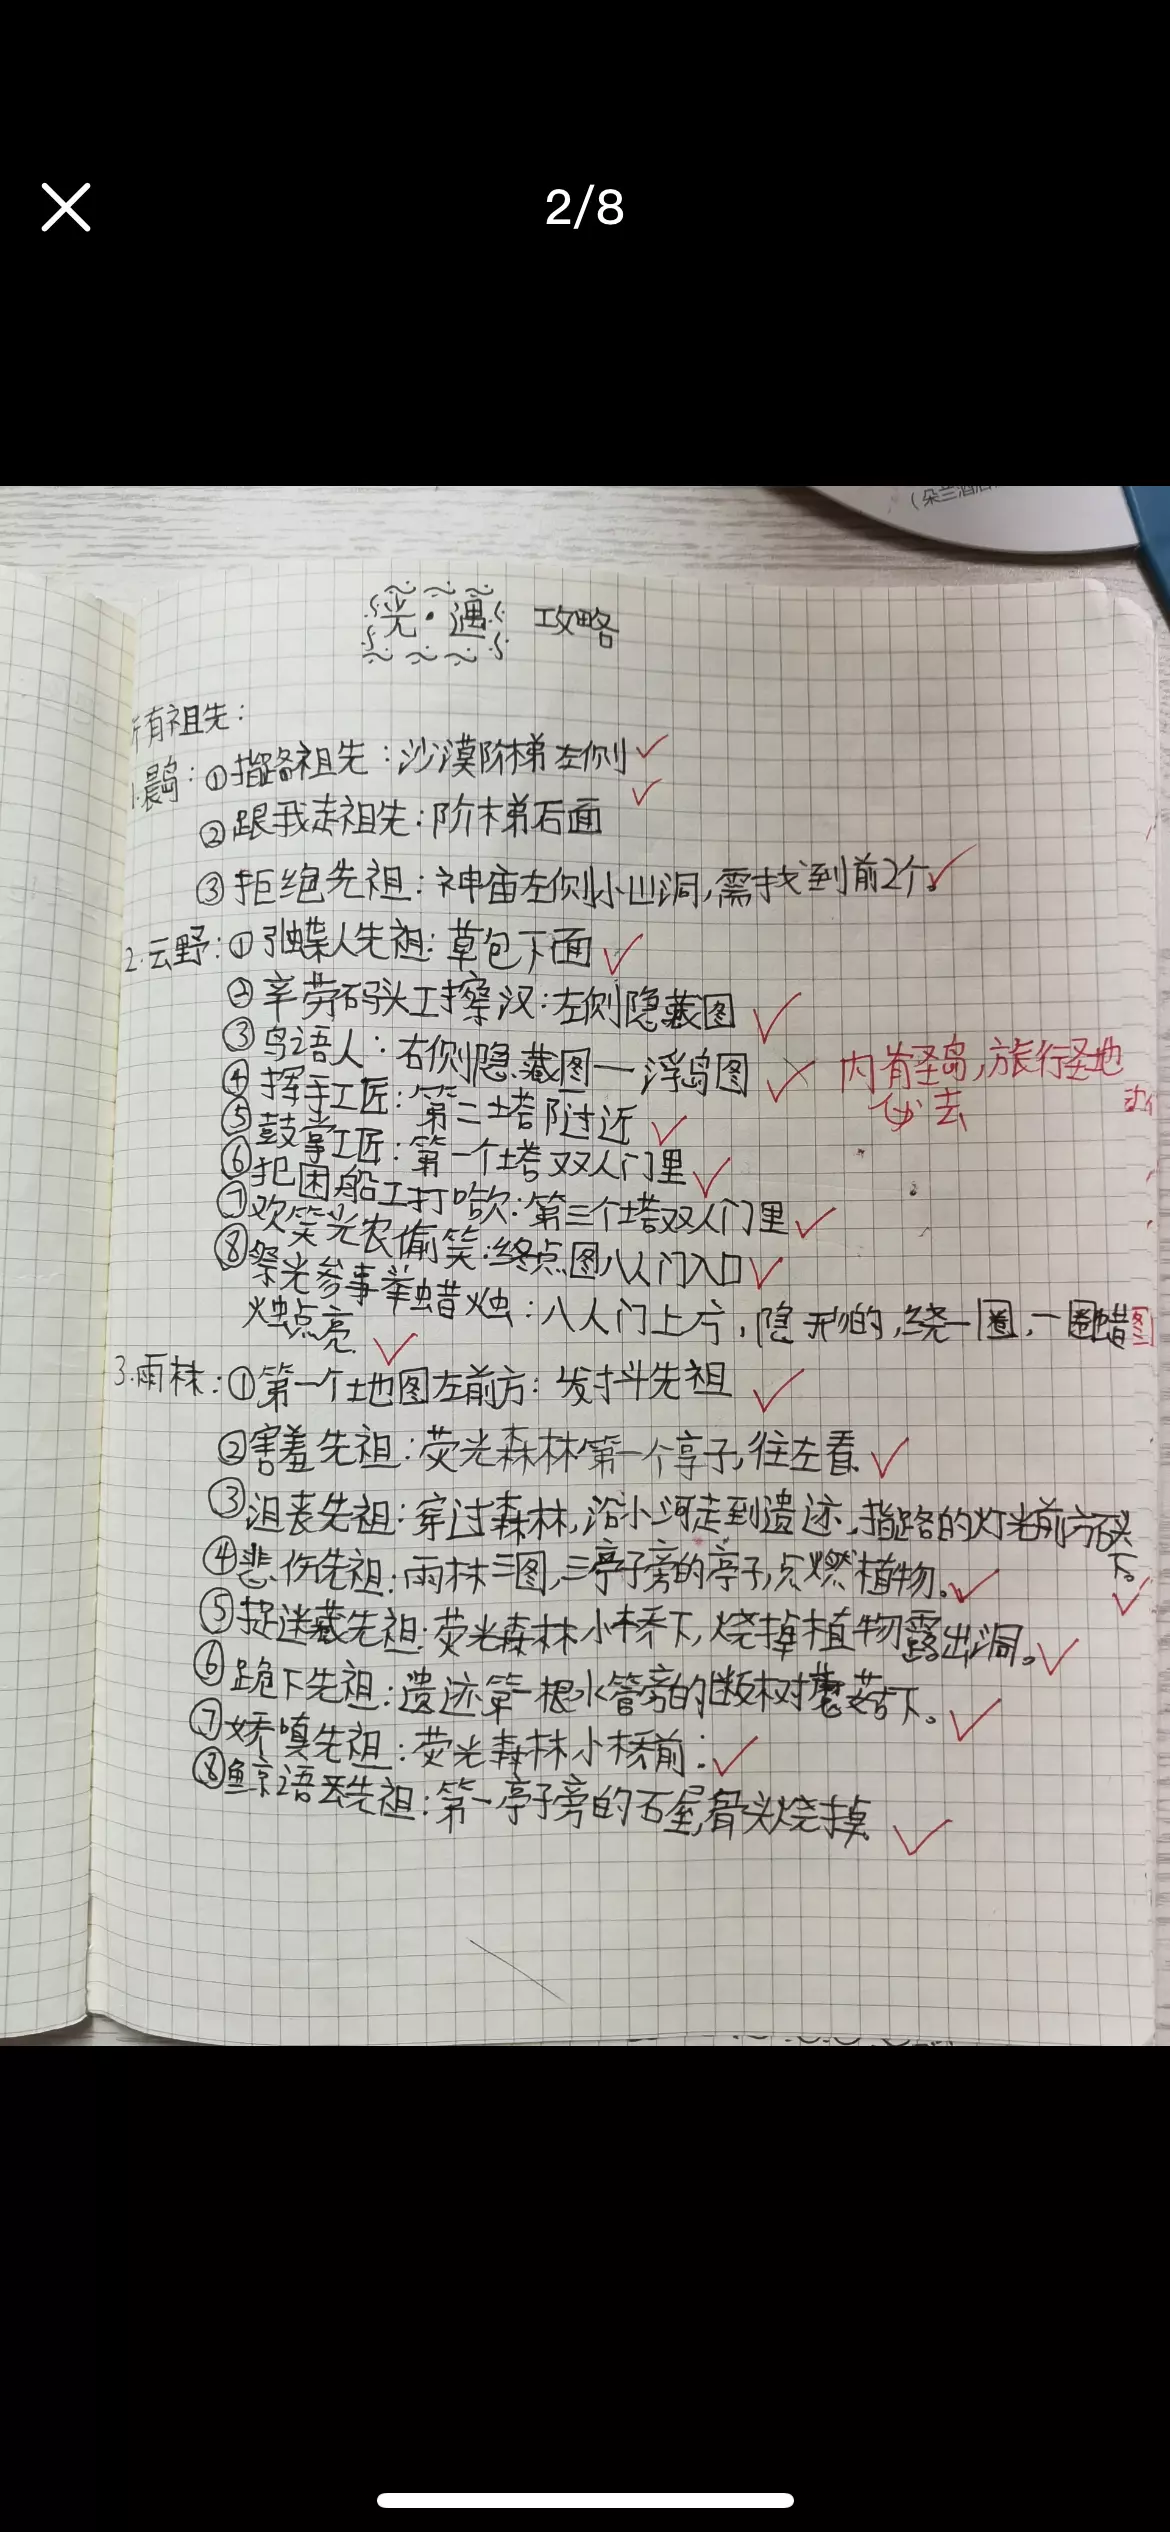 2/8
(朵兰酒店
光·遇 攻略
所有祖先:
1.晨岛:①指路祖先:沙漠阶梯左侧
②跟我走祖先:阶梯右面
③拒绝先祖:神庙左侧小山洞,需找到前2个。
2.云野:①引蝶人先祖:草包下面
②辛劳码头工擦汉:左侧隐藏图
③鸟语人:右侧隐藏图一浮岛图
内有圣岛,旅行圣地
必去
④挥手工匠:第二塔附过近
⑤鼓掌工匠:第一个塔双人门里
⑥犯困船工打哈欠:第三个塔双人门里
⑦欢笑光农偷笑:终点图八人门入口
⑧祭光参事举蜡烛:八人门上方,隐形的,绕一圈,一圈蜡
烛点亮
3.雨林:①第一个地图左前方:发抖先祖
②害羞先祖:荧光森林第一个亭子,往左看
③沮丧先祖:穿过森林,沿小河走到遗迹,指路的灯光前方码头
下。
④悲伤先祖:雨林三图,三亭子旁的亭子,点燃植物。
⑤捉迷藏先祖:荧光森林小桥下,烧掉植物露出洞。
⑥跪下先祖:遗迹第一根水管旁的断树蘑菇下。
⑦娇嗔先祖:荧光森林小桥前:
⑧鲸语先祖:第一亭子旁的石屋,骨头烧掉